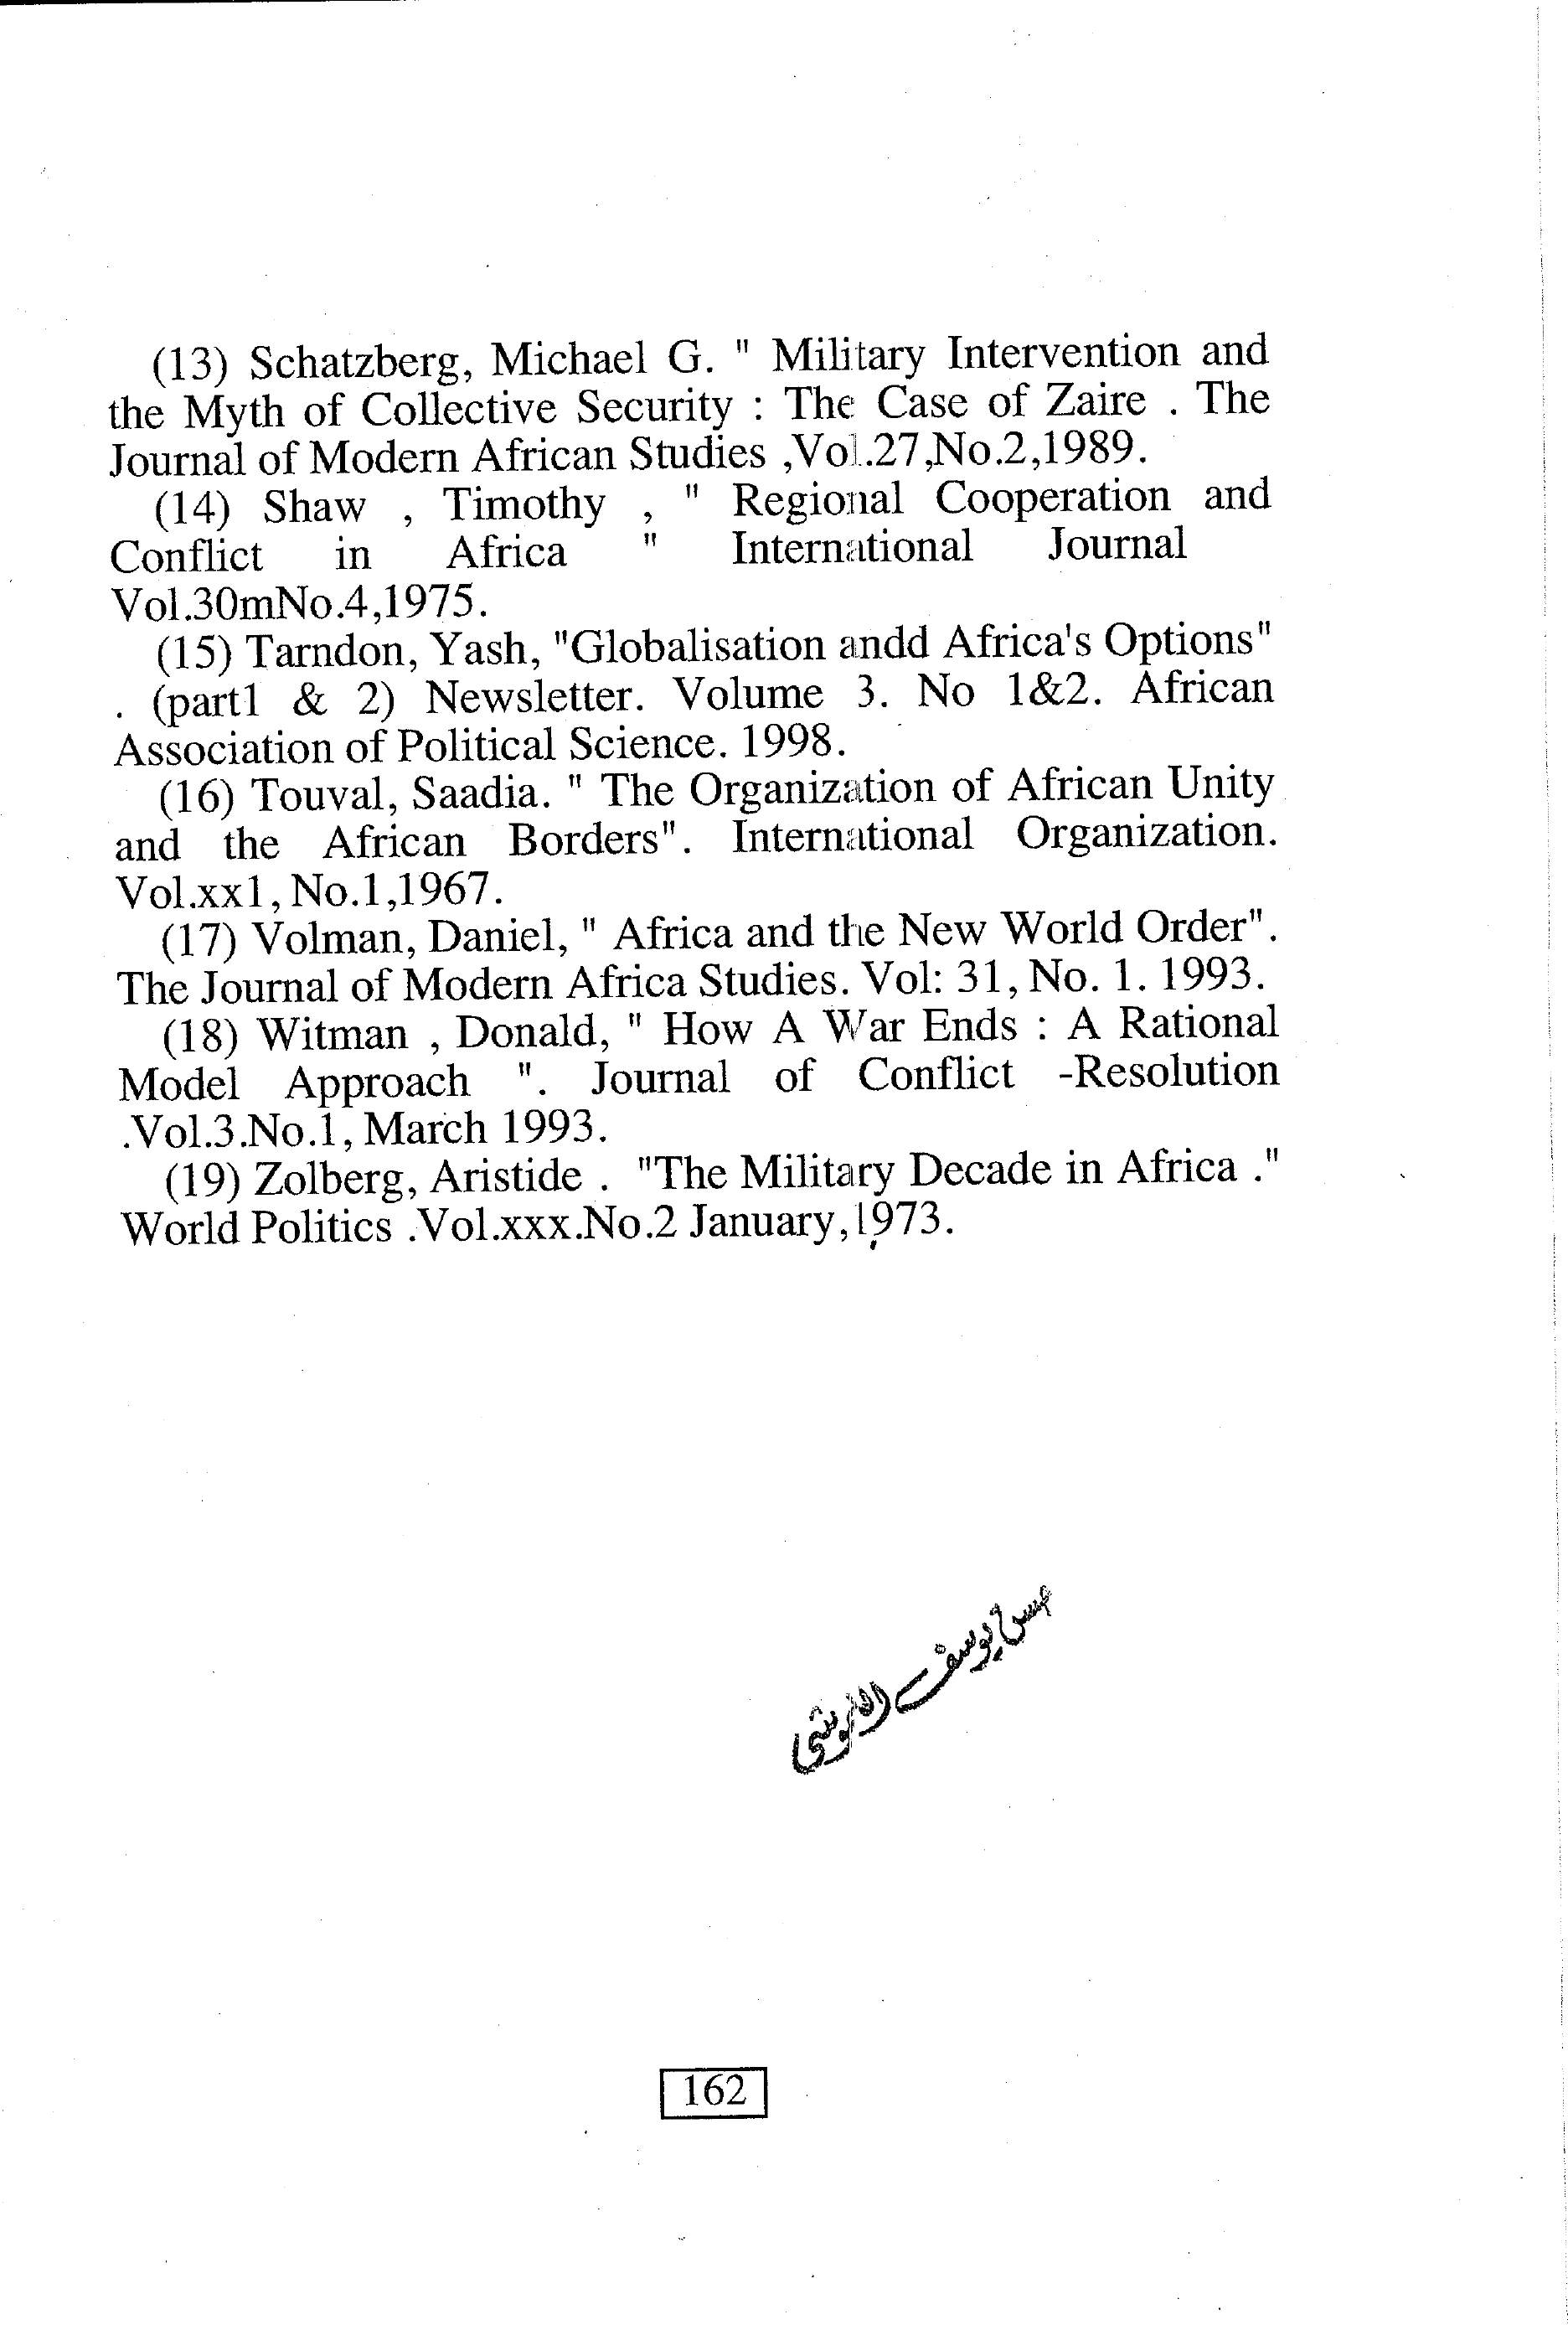 (13) Schatzberg, Michael G. " Military Intervention and
the Myth of Collective Security : The Case of Zaire . The
Journal of Modern African Studies ,Vol.27,No.2,1989.
(14) Shaw , Timothy , " Regional Cooperation and
Conflict in Africa " International Journal
Vol.30mNo.4,1975.
(15) Tarndon, Yash, "Globalisation andd Africa's Options"
. (part1 & 2) Newsletter. Volume 3. No 1&2. African
Association of Political Science. 1998.
(16) Touval, Saadia. " The Organization of African Unity
and the African Borders". International Organization.
Vol.xx1, No.1,1967.
(17) Volman, Daniel, " Africa and the New World Order".
The Journal of Modern Africa Studies. Vol: 31, No. 1. 1993.
(18) Witman , Donald, " How A War Ends : A Rational
Model Approach ". Journal of Conflict -Resolution
.Vol.3.No.1, March 1993.
(19) Zolberg, Aristide . "The Military Decade in Africa ."
World Politics .Vol.xxx.No.2 January,1973.
يوسف
162